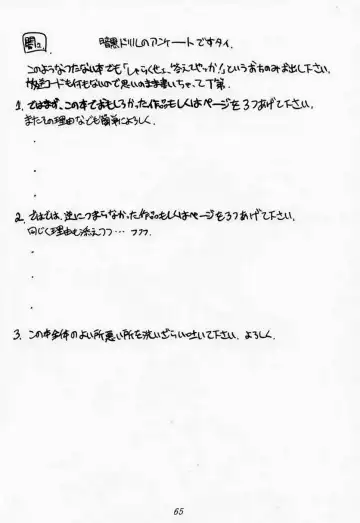 暗黒ドリルのアンケートですタイ.
このようなつたない本でも「しゃらくせぇ、答えてやっか!」というおちのみお出し下さい.
放送コードも何もないので思いのまま書いちゃって丁寧.
1. ではまず、この本でおもしろかった作品もしくはページを3つあげて下さい.
またその理由なども簡単によろしく.
2. ではでは、逆につまらなかった作品もしくはページを3つあげて下さい.
同じく理由も添えつつ… フフフ.
3. この本全体のよい所悪い所を洗いざらい吐いて下さい. よろしく.
65